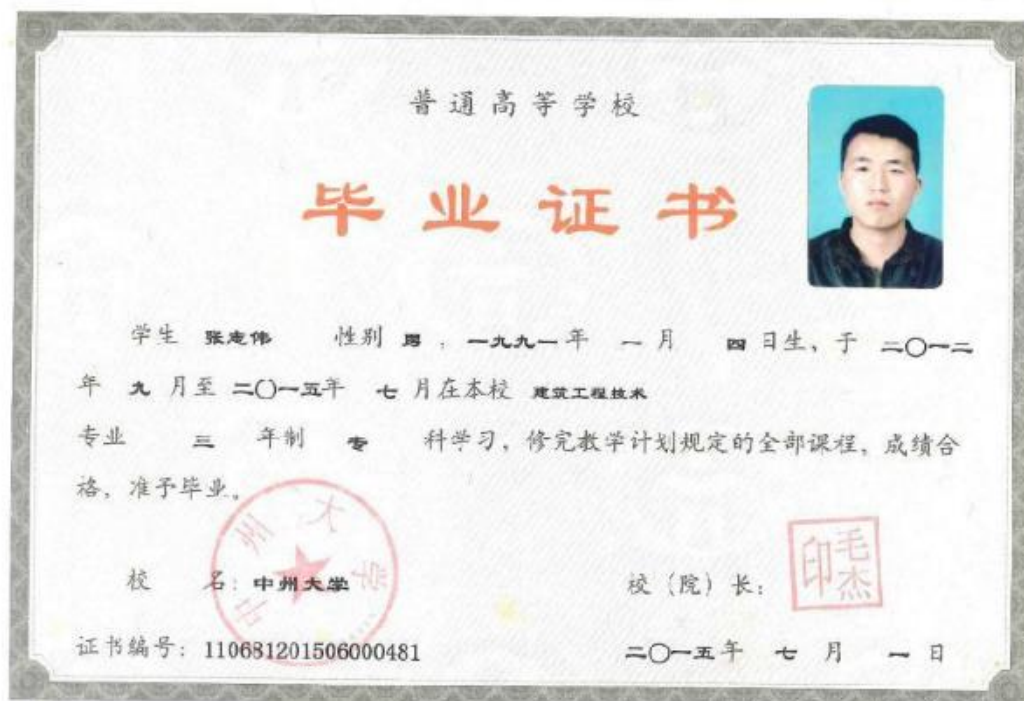 普通高等学校
毕业证书
学生 张志伟 性别 男 ，一九九一年 一月 四日生，于 二〇一二
年 九 月至 二〇一五年 七 月在本校 建筑工程技术
专业 三 年制 专 科学习，修完教学计划规定的全部课程，成绩合
格，准予毕业。
中州大学
校 名：中州大学 校（院）长：
毛杰印
证书编号：110681201506000481 二〇一五年 七 月 一 日